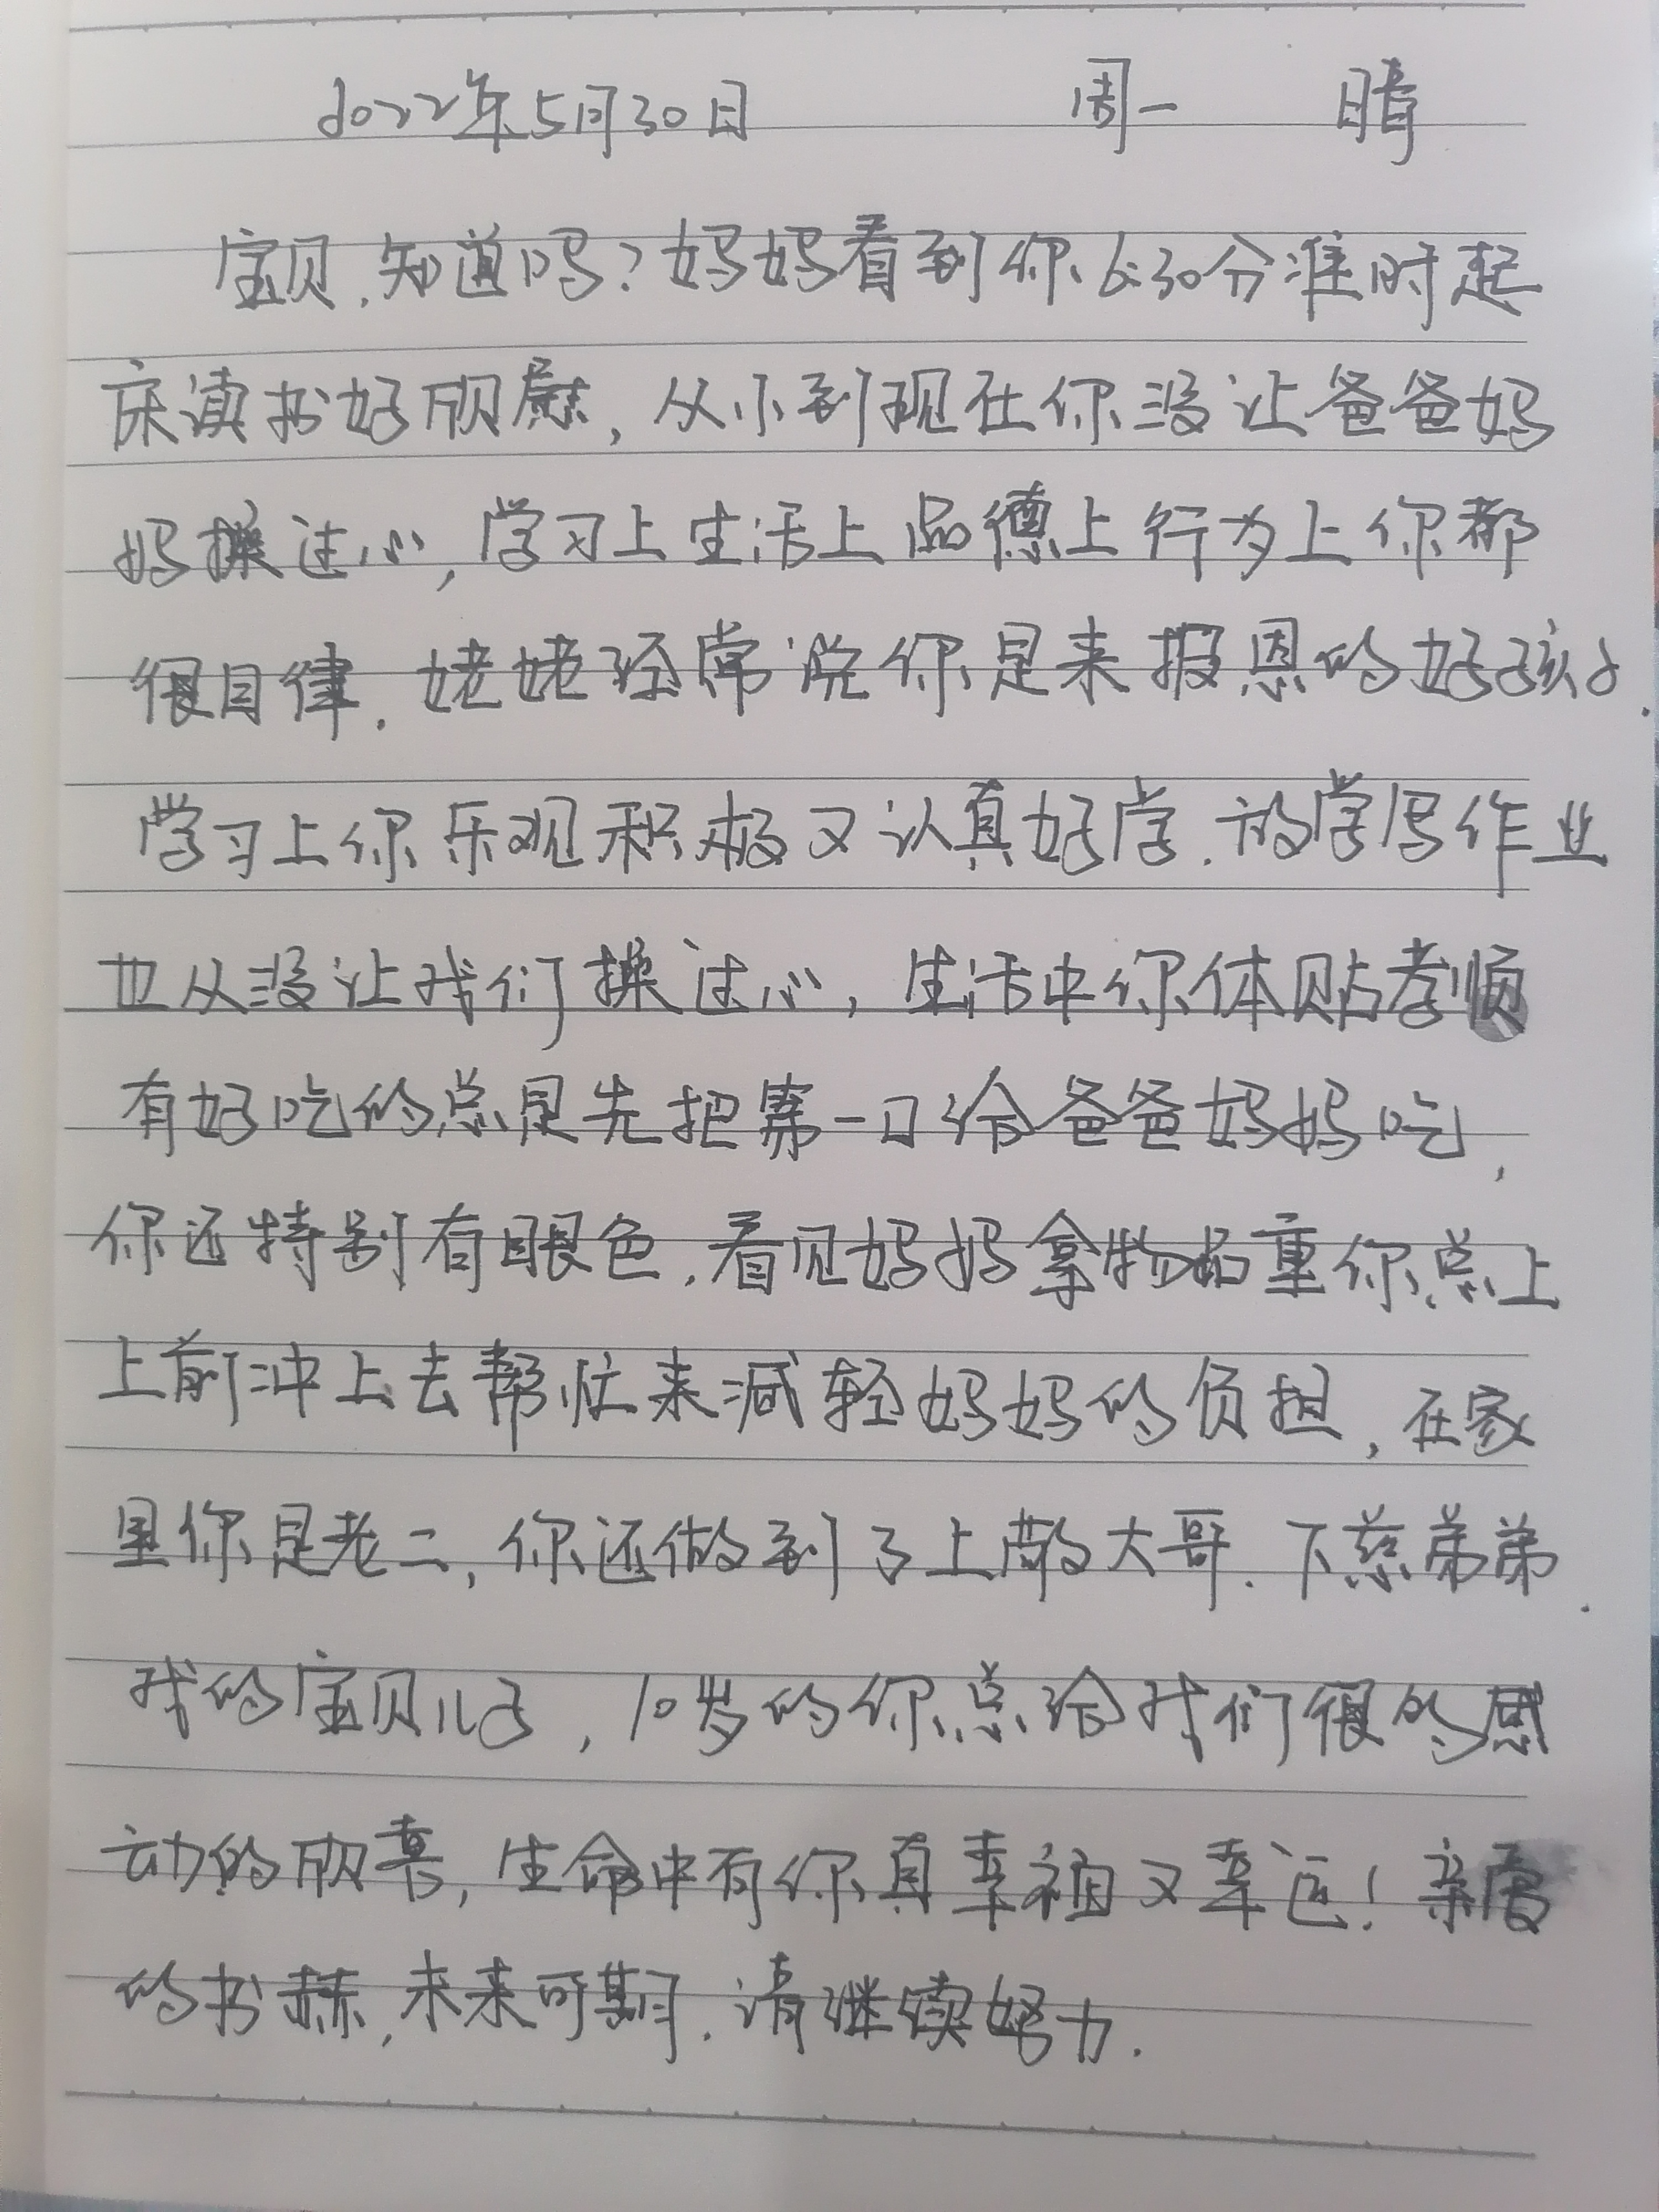 2022年5月30日 周一 晴
宝贝,知道吗?妈妈看到你6:30分准时起
床读书好欣慰,从小到现在你没让爸爸妈
妈操过心,学习上生活上品德上行为上你都
很自律.姥姥经常说你是来报恩的好孩子.
学习上你乐观积极又认真好学.放学写作业
也从没让我们操过心,生活中你体贴孝顺
有好吃的总是先把第一口给爸爸妈妈吃,
你还特别有眼色.看见妈妈拿物品重你总上
上前冲上去帮忙来减轻妈妈的负担,在家
里你是老二,你还做到了上敬大哥.下慈弟弟.
我的宝贝儿子,10岁的你总给我们很多感
动的欣喜,生命中有你真幸福又幸运!亲爱
的书赫,未来可期.请继续努力.